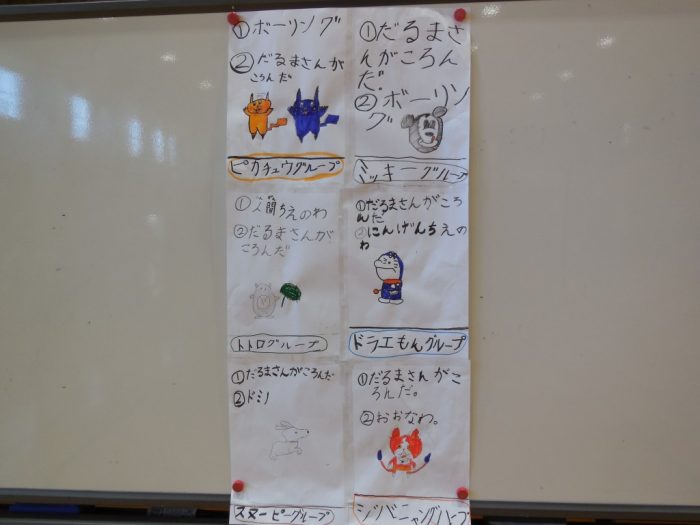 ①ボーリング
②だるまさんが
ころんだ
ピカチュウグループ
①だるまさ
んがころん
だ。
②ボーリン
グ
ミッキーグループ
①人間ちえのわ
②だるまさんが
ころんだ
トトログループ
①だるまさんがころ
んだ
②にんげんちえの
わ
ドラえもんグループ
①だるまさんがころんだ
②ドミノ
スヌーピーグループ
①だるまさんがこ
ろんだ。
②おおなわ。
ジバニャングループ